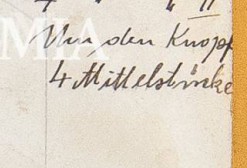 4 11
MIA
Um den Knopf
4 Mittelstücke